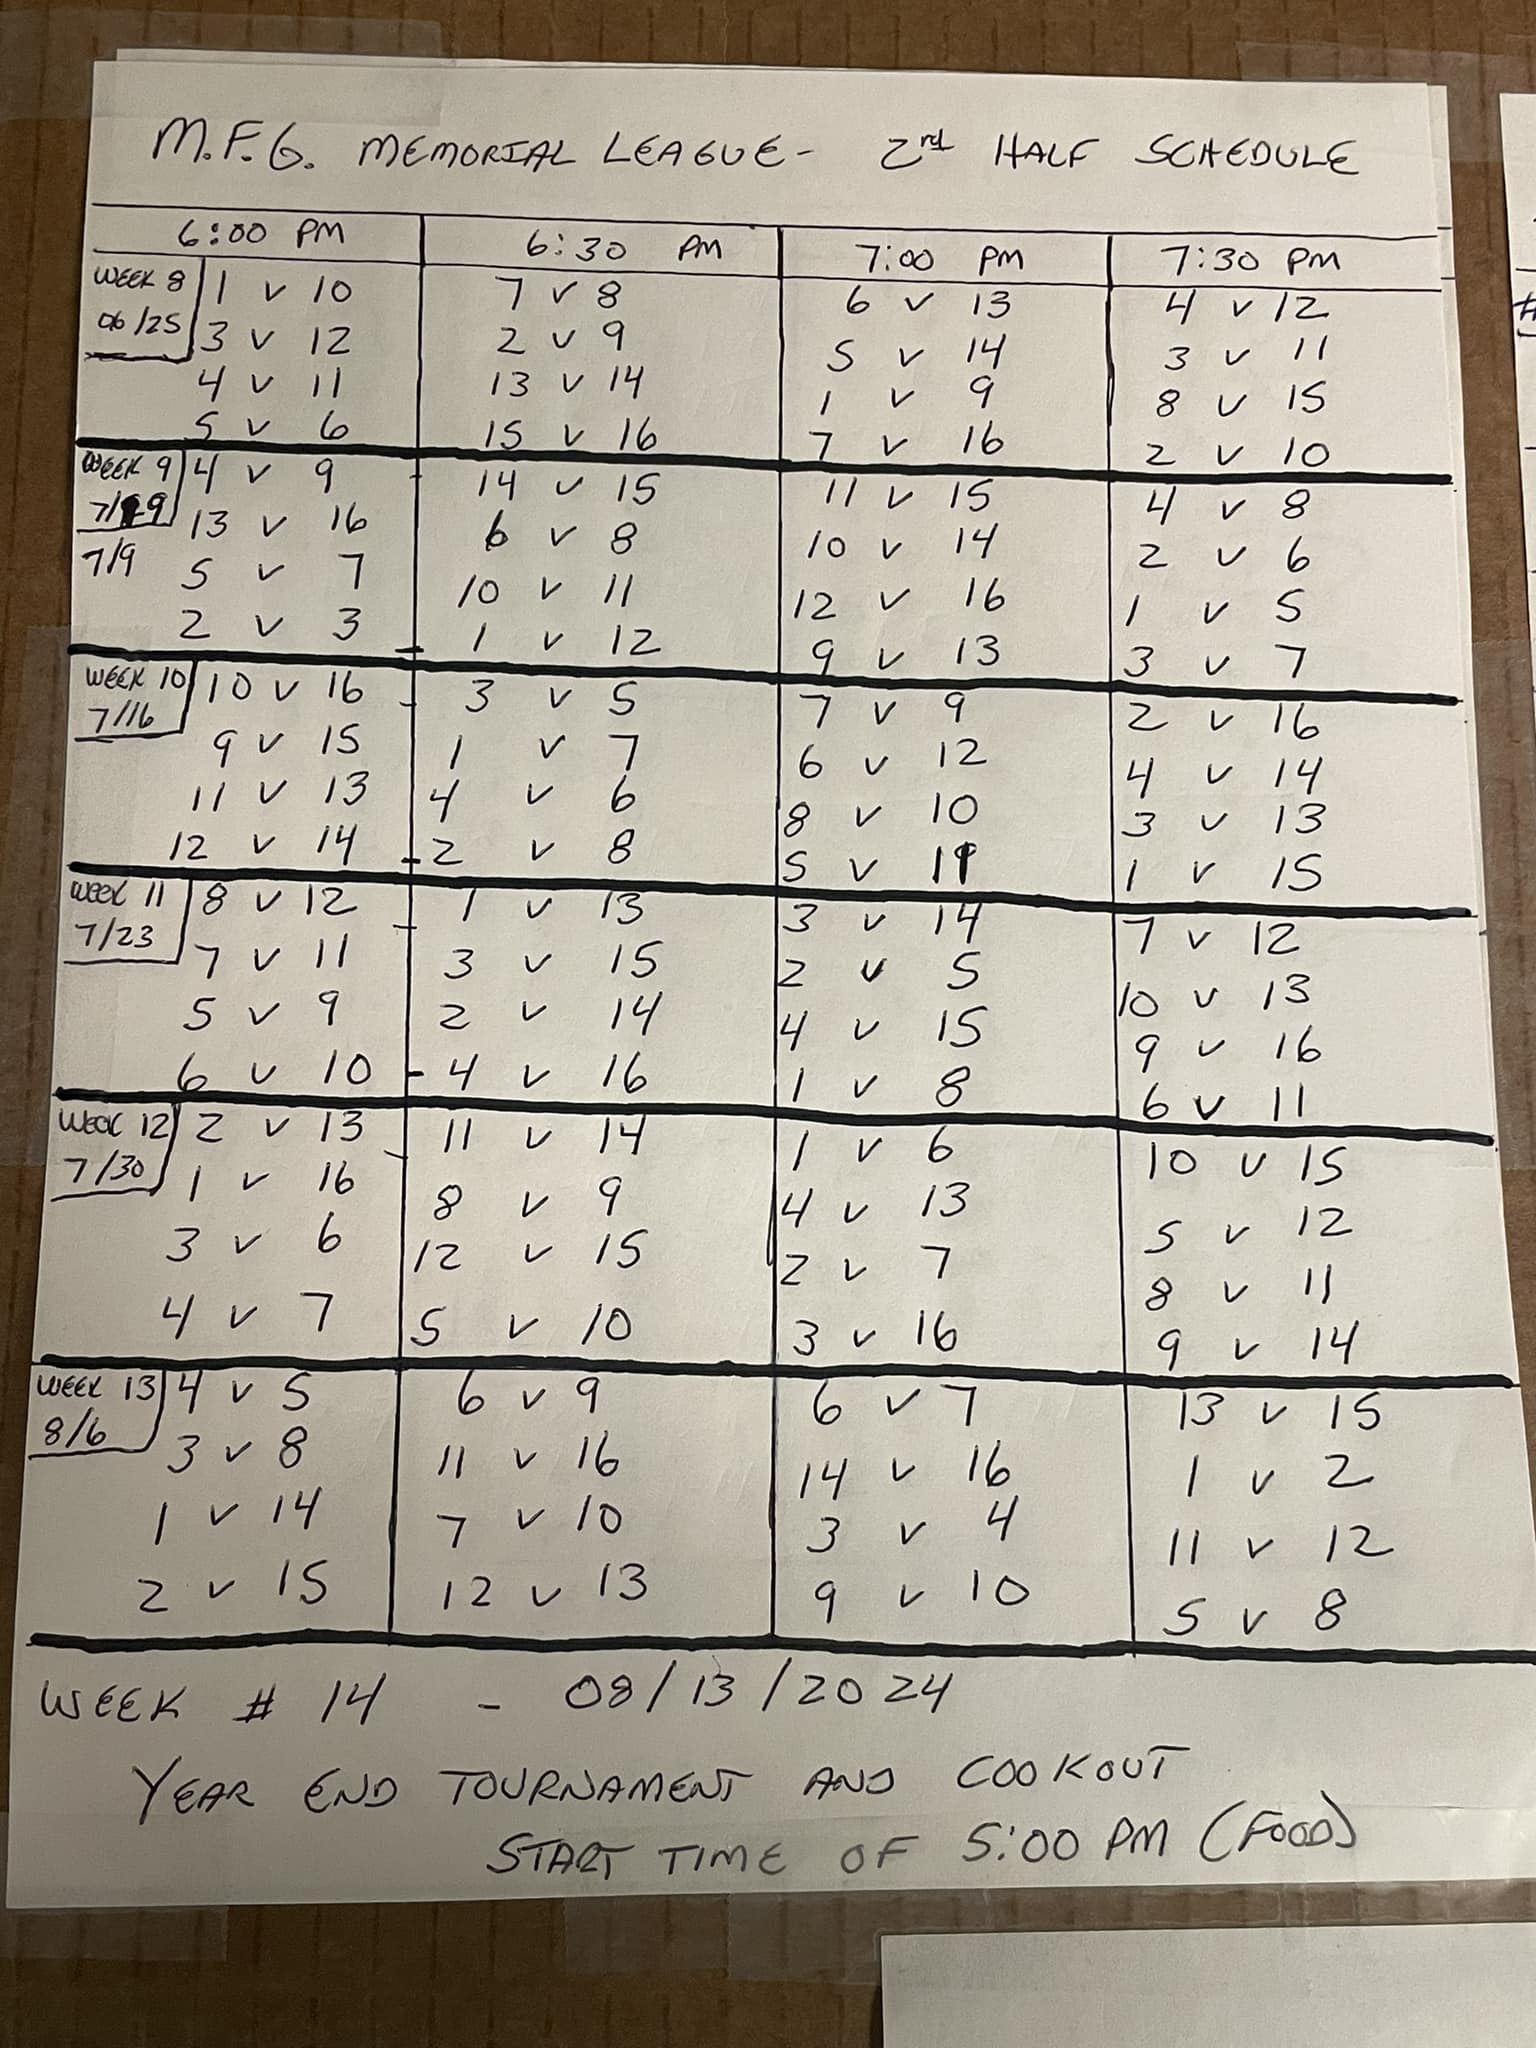 M.F.G. MEMORIAL LEAGUE - 2rd HALF SCHEDULE
6:00 PM 6:30 PM 7:00 PM 7:30 PM
WEEK 8 1 v 10 7 v 8 6 v 13 4 v 12
06/25 3 v 12 2 v 9 5 v 14 3 v 11
4 v 11 13 v 14 1 v 9 8 v 15
5 v 6 15 v 16 7 v 16 2 v 10
WEEK 9 4 v 9 14 v 15 11 v 15 4 v 8
13 v 16 6 v 8 10 v 14 2 v 6
7/9 5 v 7 10 v 11 12 v 16 1 v 5
2 v 3 1 v 12 9 v 13 3 v 7
WEEK 10 10 v 16 3 v 5 7 v 9 2 v 16
7/16 9 v 15 1 v 7 6 v 12 4 v 14
11 v 13 4 v 6 8 v 10 3 v 13
12 v 14 2 v 8 5 v 11 1 v 15
WEEK 11 8 v 12 1 v 13 3 v 14 7 v 12
7/23 7 v 11 3 v 15 2 v 5 10 v 13
5 v 9 2 v 14 4 v 15 9 v 16
6 v 10 4 v 16 1 v 8 6 v 11
WEEK 12 2 v 13 11 v 14 1 v 6 10 v 15
7/30 1 v 16 8 v 9 4 v 13 5 v 12
3 v 6 12 v 15 2 v 7 8 v 11
4 v 7 5 v 10 3 v 16 9 v 14
WEEK 13 4 v 5 6 v 9 6 v 7 13 v 15
8/6 3 v 8 11 v 16 14 v 16 1 v 2
1 v 14 7 v 10 3 v 4 11 v 12
2 v 15 12 v 13 9 v 10 5 v 8
WEEK # 14 - 08/13/2024
YEAR END TOURNAMENT AND COOKOUT
START TIME OF 5:00 PM (FOOD)